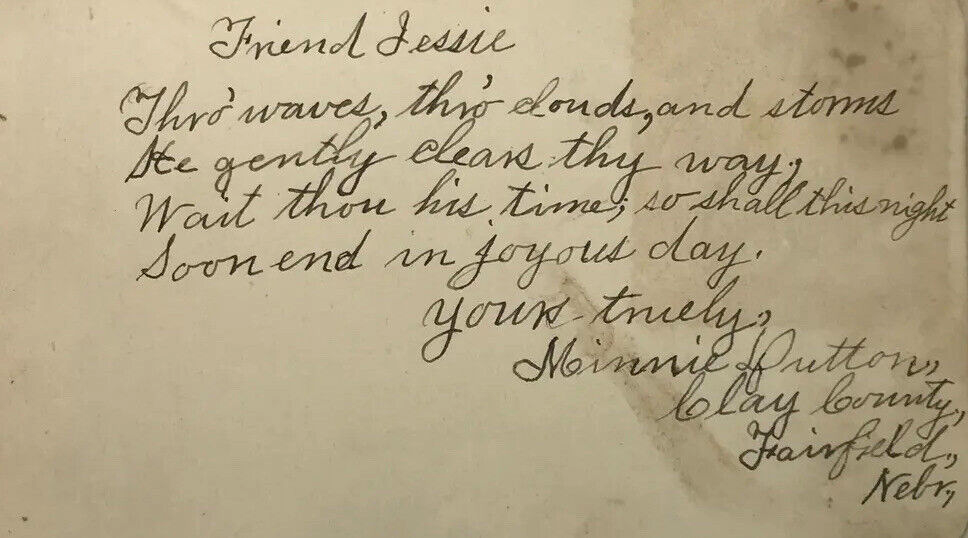 Friend Jessie
Thro' waves, thro' clouds, and storms
He gently clears thy way;
Wait thou his time; so shall this night
Soon end in joyous day.
yours truely,
Minnie Dutton,
Clay County,
Fairfield,
Nebr,